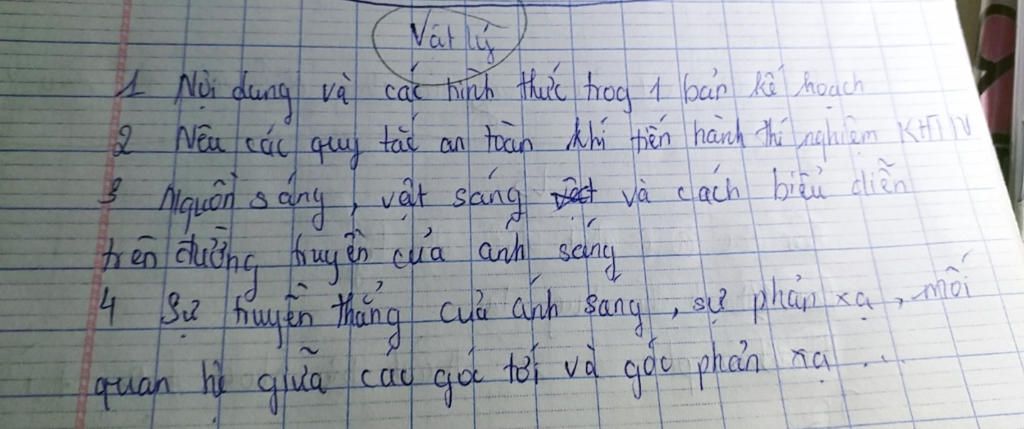 Vật lý
1 Nội dung và các hình thức trog 1 bản kế hoạch
2 Nêu các quy tắc an toàn khi tiến hành thí nghiệm KHTN
3 Nguồn sáng, vật sáng và cách biểu diễn
trên đường truyền của ánh sáng
4 Sự truyền thẳng của ánh sáng, sự phản xạ, mối
quan hệ giữa các góc tới và góc phản xạ ...